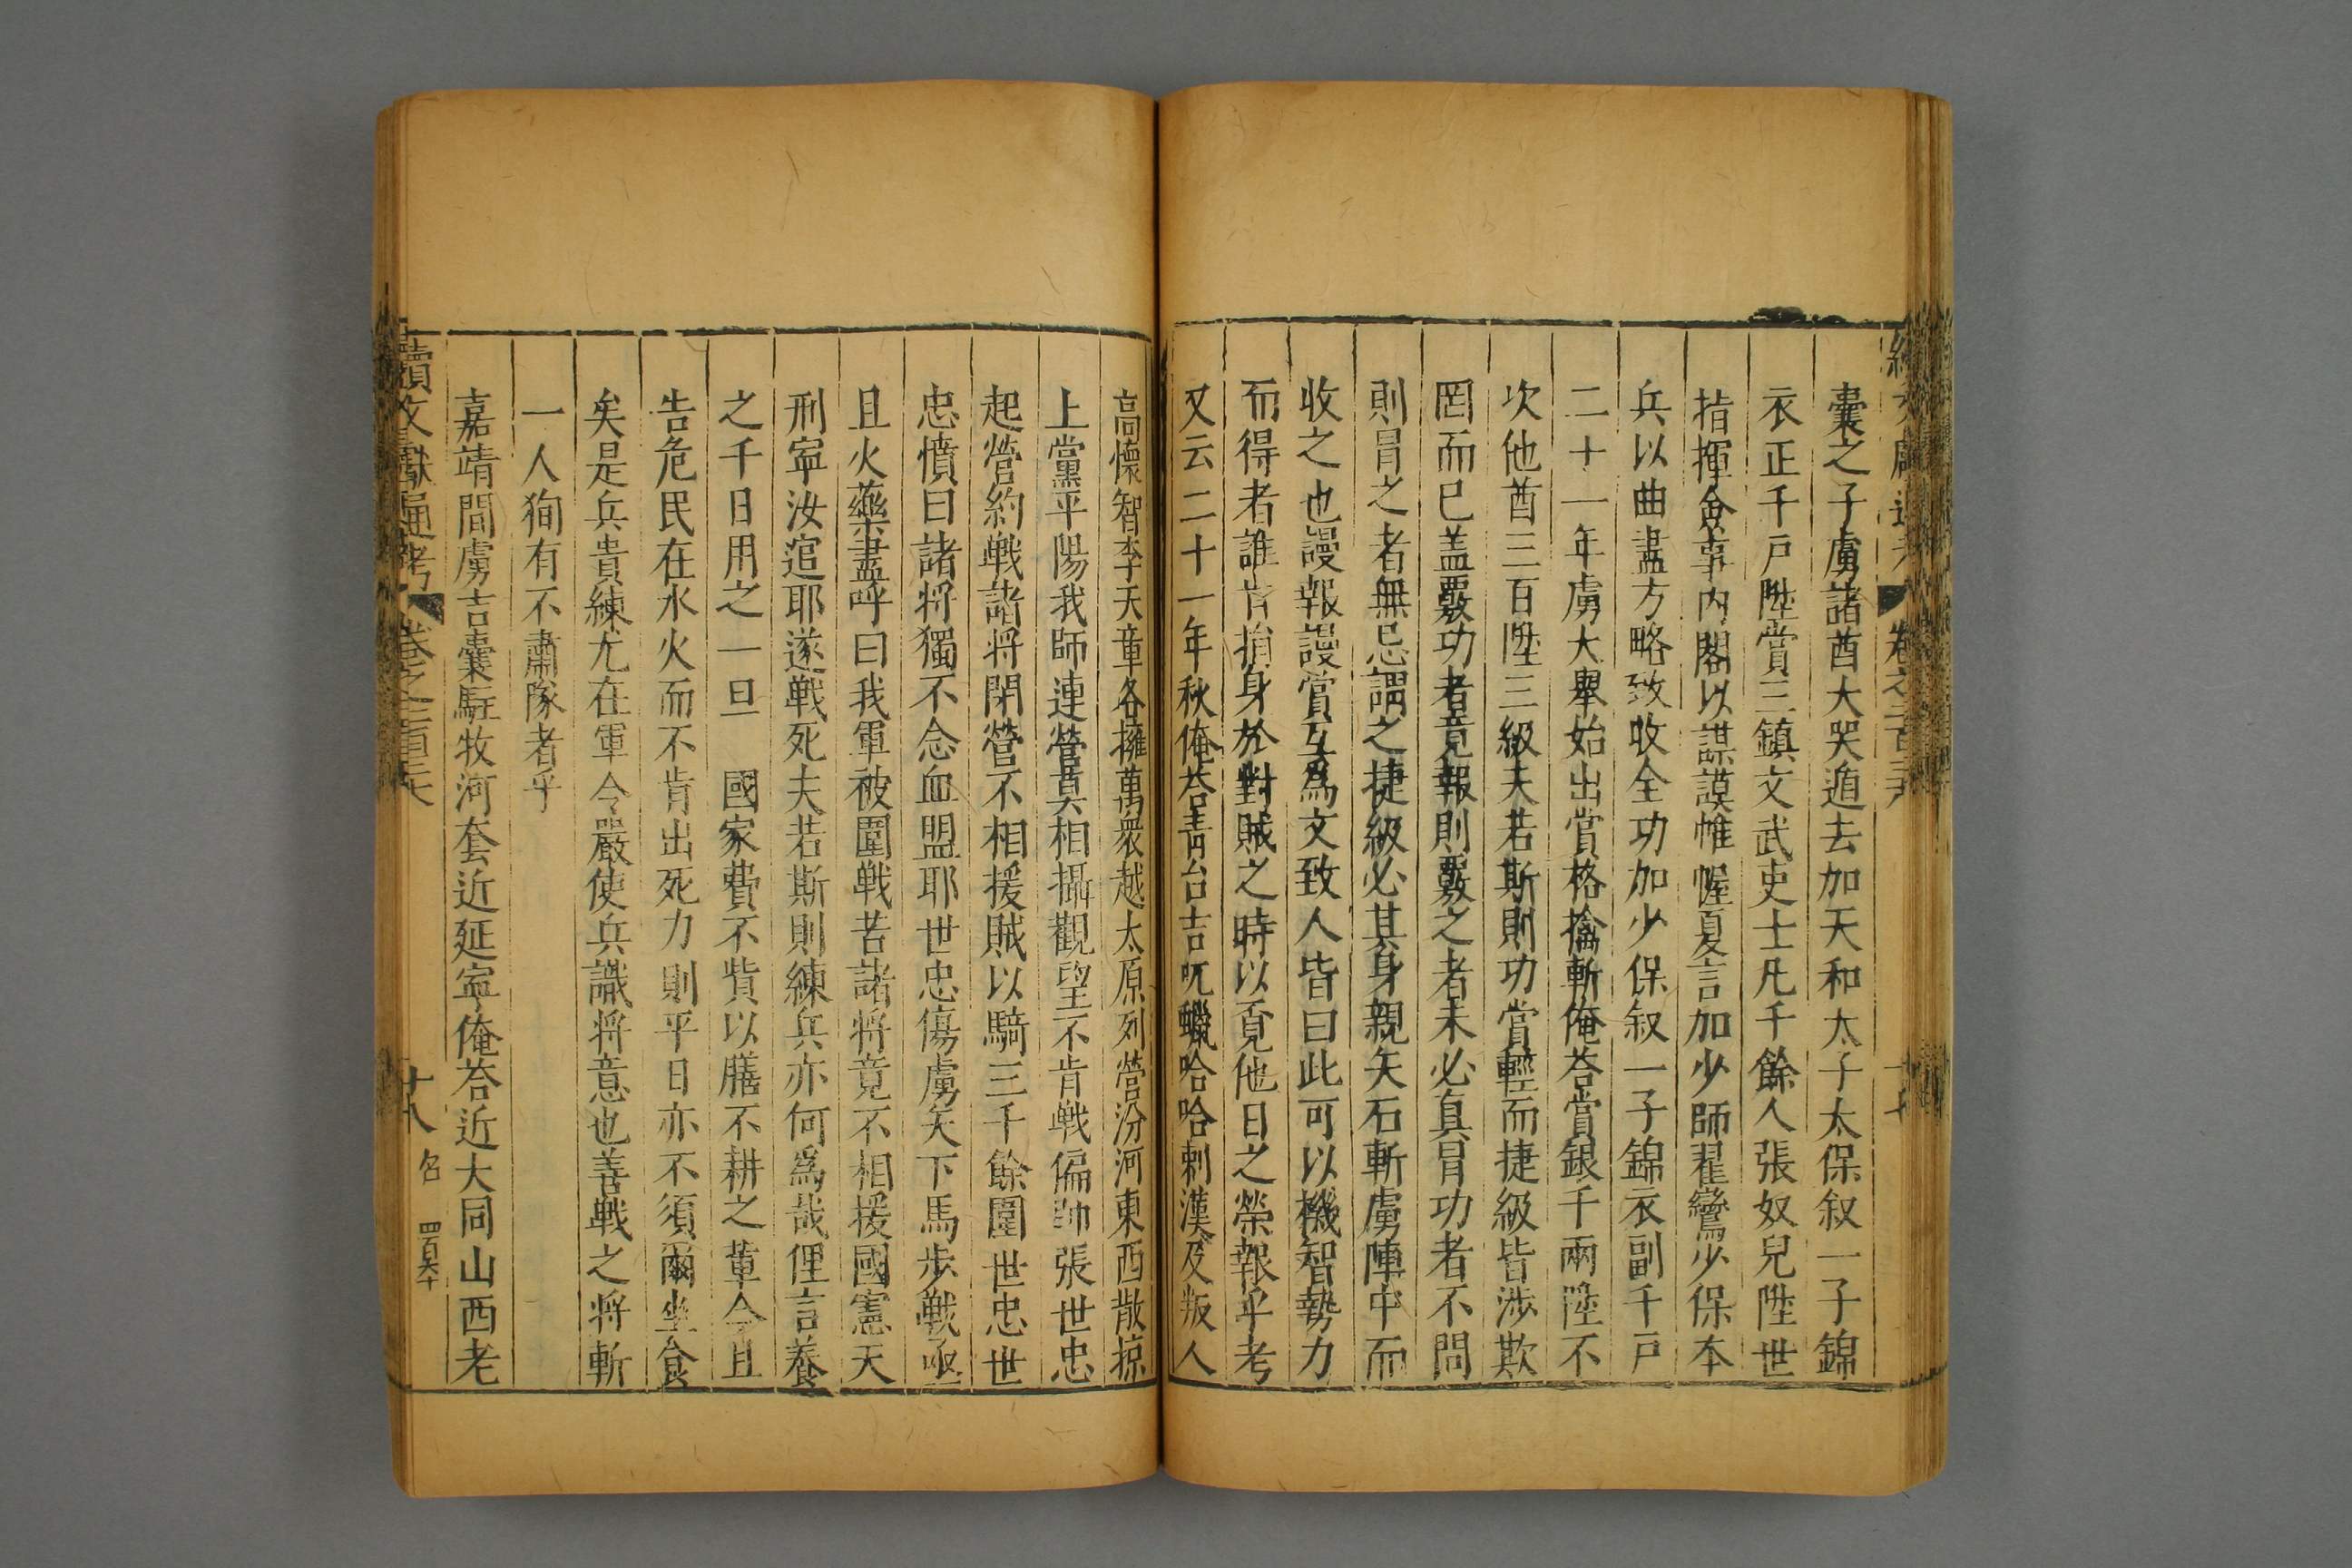 囊之子虜諸酋大哭遁去加天和太子太保叙一子錦
衣正千戶陞賞三鎮文武吏士凡千餘人張奴兒陞世
指揮僉事內閣以謀謨帷幄夏言加少師翟鸞少保本
兵以曲盡方略致收全功加少保叙一子錦衣副千戶
二十一年虜大舉始出賞格擒斬俺荅賞銀千兩陞不
次他酋三百陞三級夫若斯則功賞輕而捷級皆涉欺
罔而已盖覈功者竟報則覈之者未必真冒功者不問
則冐之者無忌謂之捷級必其身親矢石斬虜陣中而
收之也謾報謾賞互為文致人皆曰此可以機智勢力
而得者誰肯捐身於對賊之時以覔他日之榮報乎考
又云二十一年秋俺荅青台吉呪蠟哈哈剌漢及叛人
高懷智李天章各擁萬衆越太原列營汾河東西散掠
上黨平陽我師連營莫相攝觀望不肯戰偏帥張世忠
起營約戰諸将閉營不相援賊以騎三千餘圍世忠世
忠憤曰諸将獨不念血盟耶世忠傷虜矢下馬步戰亟
且火藥盡呼曰我軍被圍戰苦諸将竟不相援國憲天
刑寧汝逭耶遂戰死夫若斯則練兵亦何爲哉俚言養
之千日用之一旦 國家費不貲以膳不耕之輩今且
告危民在水火而不肯出死力則平日亦不須爾坐食
矣是兵貴練尤在軍令嚴使兵識将意也善戰之将斬
一人狥有不肅隊者乎
嘉靖間虜吉囊駐牧河套近延寧俺荅近大同山西老
續文獻通考 卷之二百三十六 十八